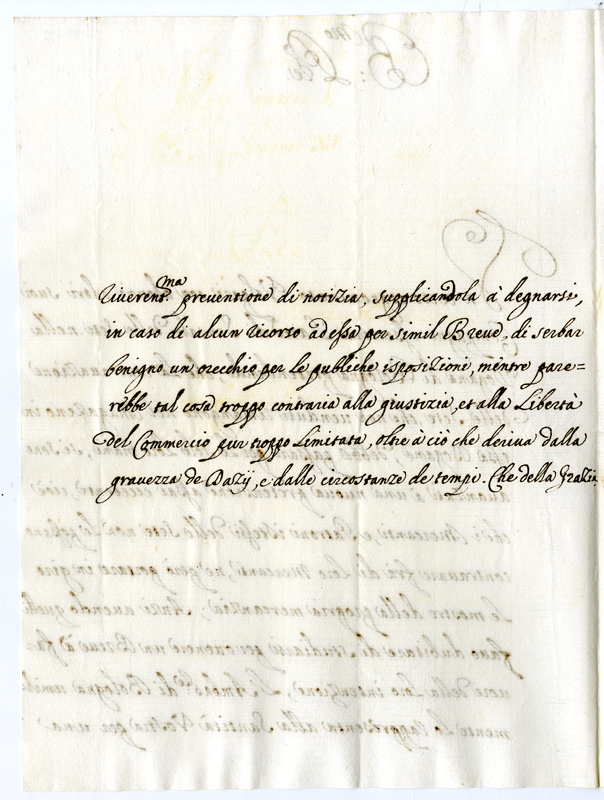 riverent.ma preventione di notizia, supplicandola à degnarsi,
in caso di alcun ricorso ad essa per simil Breve, di serbar
benigno un orecchio per le publiche isposizioni, mentre pare=
rebbe tal cosa troppo contraria alla giustizia, et alla Libertà
del Commercio pur troppo limitata, oltre à ciò che deriva dalla
gravezza de Dazij, e dalle circostanze de tempi. Che della Grazia